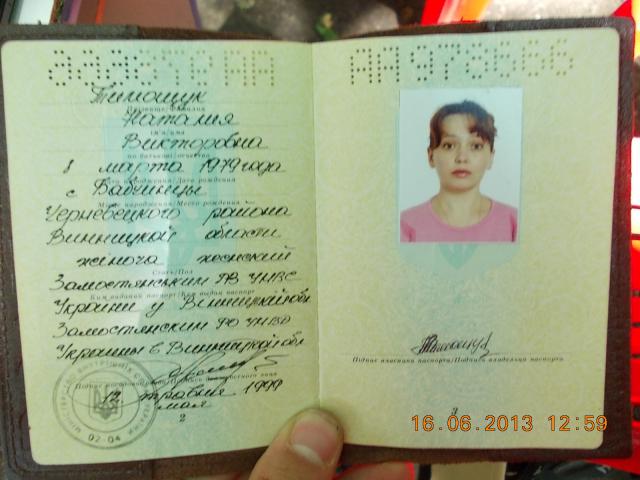 АА 978666
Тимощук
Прізвище/Фамилия
Наталия
ім'я/имя
Викторовна
по батькові/отчество
8 марта 1979 года
Дата народження/Дата рождения
с Бабчинцы
Місце народження/Место рождения
Черневецкого района
Винницкой области
жіноча женский
Стать/Пол
Замостянським РВ УМВС
Ким виданий паспорт/Кем выдан паспорт
України у Вінницькій обл
Замостянским РО УМВД
Украины в Винницкой обл
12 травня 1999
мая
МІНІСТЕРСТВО ВНУТРІШНІХ СПРАВ УКРАЇНИ
02-04
2
АА 978666
Підпис власника паспорта/Подпись владельца паспорта
3
16.06.2013 12:59